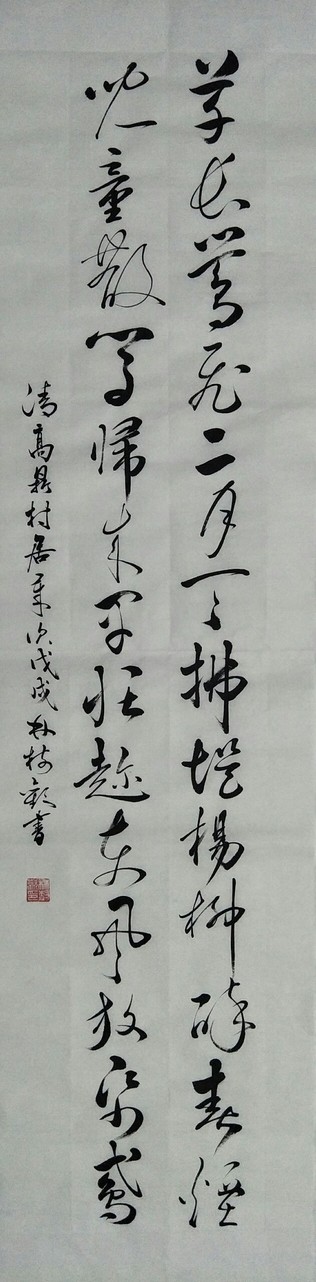 草長鶯飛二月天拂堤楊柳醉春煙
兒童散學歸來早忙趁東風放帋鳶
清高鼎村居歲次戊戌書